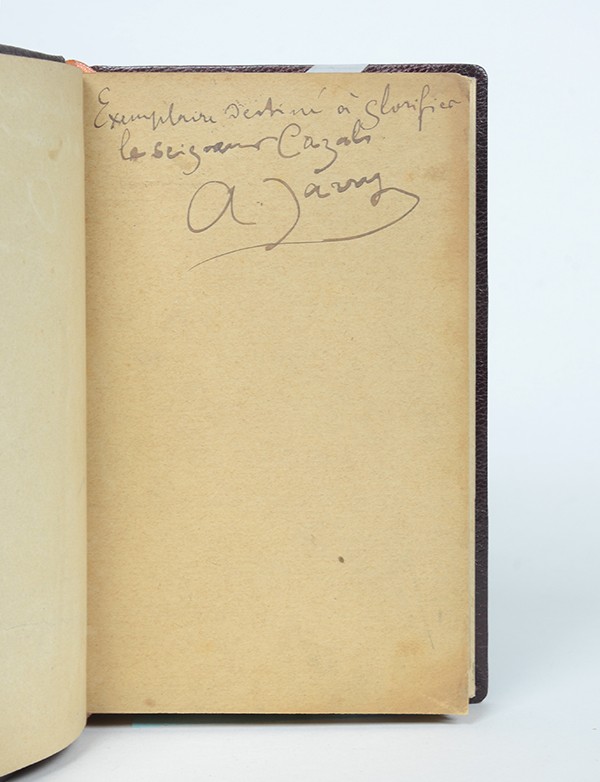 Exemplaire destiné à glorifier
le seigneur Cazals
A. Jarry